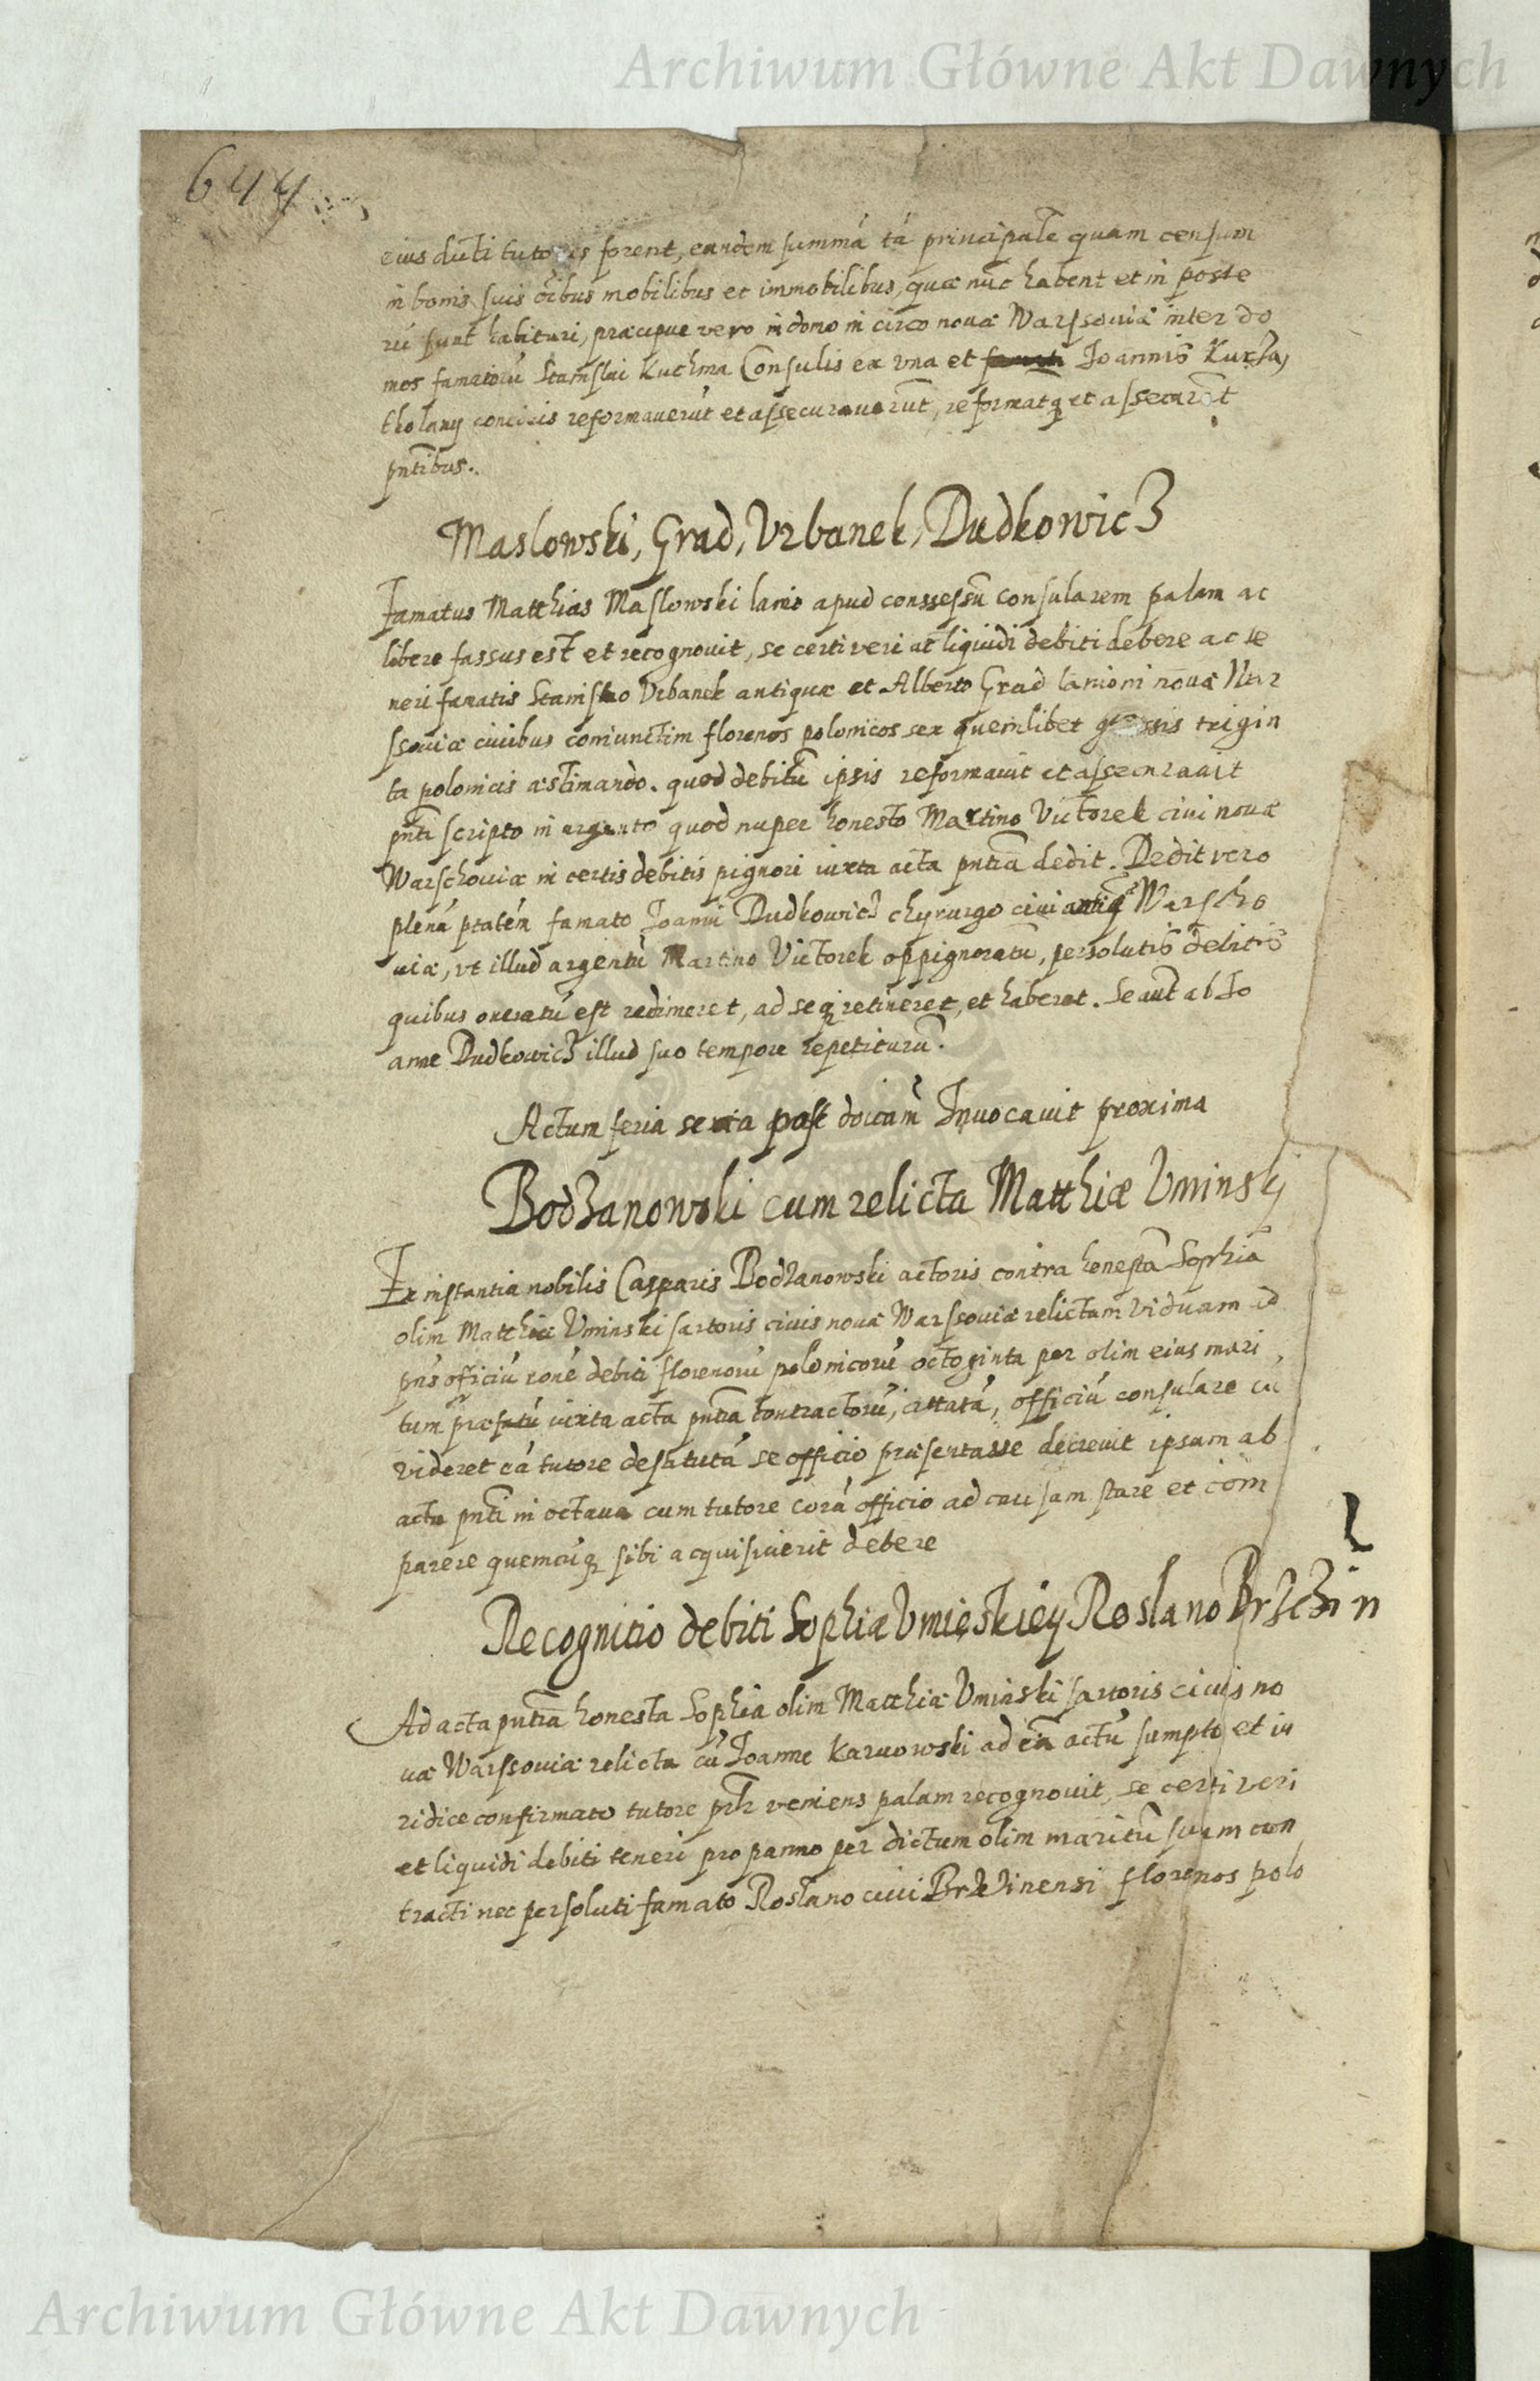 Archiwum Główne Akt Dawnych
644
eius dicti tutores forent, eandem summā tā principalē quam censum
in bonis suis oībus mobilibus et immobilibus, quæ nūc habent et in poste
rū sunt habituri, præcipue vero in domo in circo nouæ Warssouiæ inter do
mos famatorū Stanislai Kuchma Consulis ex vna et Joannis
conciuis reformauerūt et assecurauerūt, reformātq et assecurāt
pntibus.
Maslowski, Grad, Vrbanek, Dudkowicz
Famatus Matthias Maslowski lanio apud conssessū consularem palam ac
libere fassus est et recognouit, se certi veri ac liquidi debiti debere ac te
neri famatis Stanislao Vrbanek antiquæ et Alberto Grad lanioni nouæ War
ssouiæ ciuibus coniunctim florenos polonicos sex quemlibet grossis trigin
ta polonicis æstimando. quod debitū ipsis reformauit et assecurauit
pnti scripto in argento quod nuper honesto Martino Victorek ciui nouæ
Warschouiæ in certis debitis pignori iuxta acta pntia dedit. Dedit vero
plenā ptatēm famato Joanni Dudkowicz chyrurgo ciui antiq Warscho
uiæ, vt illud argentū Martino Victorek oppignoratū, persolutis debitis
quibus oneratū est redimeret, ad seq retineret, et haberet. Se aut ab Jo
anne Dudkowicz illud suo tempore repetiturū.
Actum feria sexta post doicam Inuocauit proxima
Bodzanowski cum relicta Matthiæ Vminskj
Ex instantia nobilis Casparis Bodzanowski actoris contra honestā Sophiā
olim Matthiæ Vminski sartoris ciuis nouæ Warssouiæ relictam viduam ad
pns officiū rōne debiti florenorū polonicorū octoginta per olim eius mari
tum præfatū iuxta acta pntia contractorū, cittatā, officiū consulare cū
videret eā tutore destitutā se officio præsentasse decreuit ipsam ab
actu pnti in octaua cum tutore corā officio ad causam stare et com
parere quemcūq sibi acquisiuerit debere
Recognitio debiti Sophiæ Vmięskiey Roslano Brzezin
Ad acta pntia honesta Sophia olim Matthiæ Vminski sartoris ciuis no
uæ Warssouiæ relicta cū Joanne Karwowski ad eā actū sumpto et iu
ridice confirmato tutore veniens palam recognouit, se certi veri
et liquidi debiti teneri pro panno per dictum olim maritū suum con
tracti nec persoluti famato Roslano ciui Brzezinensi florenos polo
Archiwum Główne Akt Dawnych